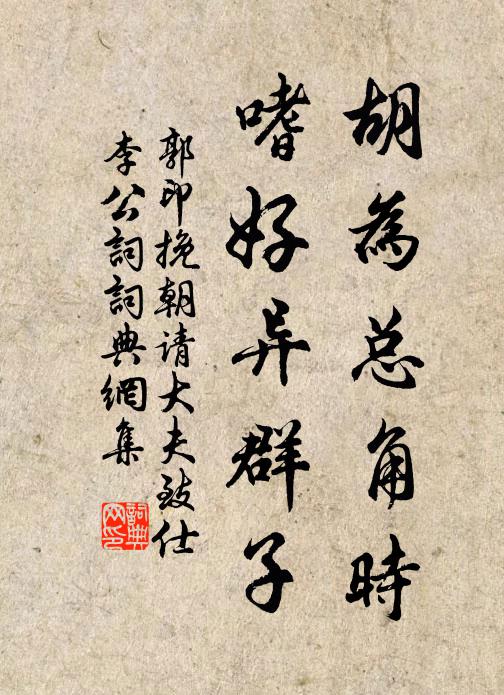 胡為总角時
嗜好异群子
郭印挽朝请大夫致仕
李公詞詞典網集
詞典网印